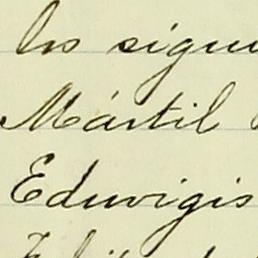 los sigui
Mártil
Eduvigis